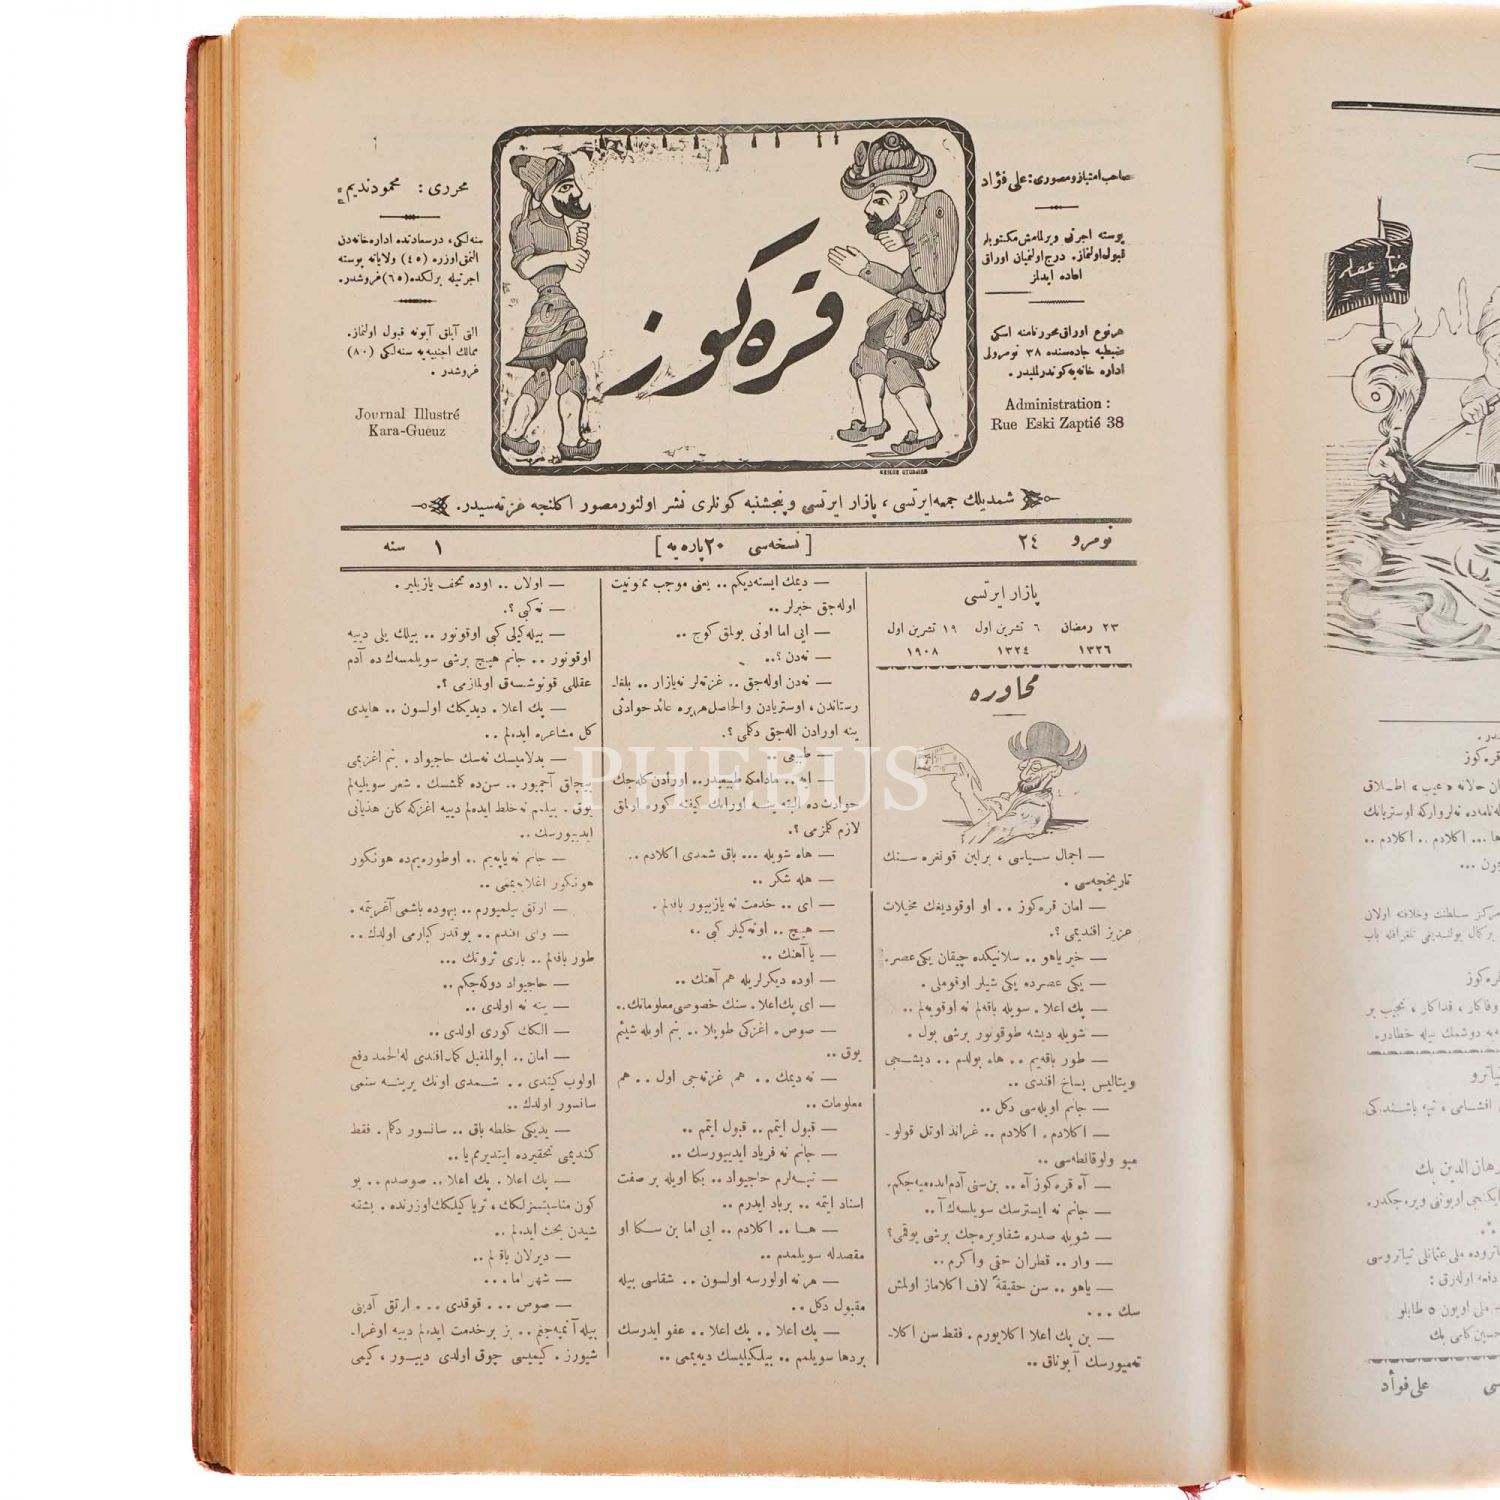 صاحب امتياز و مصوری : علی فؤاد
پوسته اجرتی ويرلمامش مكتوبلر
قبول اولنماز. درج اولنميان اوراق
اعاده ايدلز
هر نوع اوراق محررنامنه اسكی
ضبطيه جاده‌سنده ٣٨ نومرولی
اداره خانه‌يه كوندرلميدر .
Administration :
Rue Eski Zaptié 38
قره كوز
محرری : محمود نديم
سنه‌لكی ، درسعادتده اداره‌خانه‌دن
النمق اوزره (٤٥) ولاياته پوسته
اجرتيله برلكده (٦٥) غروشدر.
التی آيلق آبونه قبول اولنماز.
ممالك اجنبيه‌يه سنه‌لكی (٨٠)
غروشدر .
Journal Illustré
Kara-Gueuz
شمديلك جمعه ايرتسی ، پازار ايرتسی و پنجشنبه كونلری نشر اولنور مصور اكلنجه غزته‌سيدر.
نومرو ٢٤
[ نسخه‌سی ٢٠ پاره‌يه ]
١ سنه
پازار ايرتسی
٢٣ رمضان ٦ تشرين اول ١٩ تشرين اول
١٣٢٦ ١٣٢٤ ١٩٠٨
محاوره
— اجمال سياسی ، برلين قونفره سنك
تاريخچه‌سی .
— امان قره كوز . . او اوقوديغك مخيلات
عزيز افنديمی ؟.
— خير ياهو .. سلانيكده چيقان يكی عصر.
— يكی عصرده يكی شيلر اوقوملی .
— پك اعلا . سويله باقه‌لم نه اوقويه‌لم ..
— شويله ديشه طوقونور برشی بول .
— طور باقه‌يم .. هاه بولدم .. ديشجی
ويتاليس پساخ افندی ..
— جانم اويله‌سی دكل ..
— اكلادم. اكلادم .. غراند اوتل قولو-
مبو ولوقانطه‌سی ..
— آه قره كوز آه .. بن سنی آدم ايده‌ميه‌جكم.
— جانم نه ايسترسك سويلسه‌ك آ ..
— شويله صدره شفاويره‌جك برشی يوقمی؟
— وار .. قطران حقی واكرم ..
— ياهو .. سن حقيقةً لاف اكلاماز اولمش
سك ...
— بن پك اعلا اكلايورم . فقط سن اكلا-
ته‌ميورسك آ بوناق ..
— ديمك ايسته‌ديكم .. يعنی موجب ممنونيت
اوله‌جق خبرلر ..
— ايی اما اونی بولمق كوچ ..
— نه‌دن ؟..
— نه‌دن اوله‌جق .. غزته‌لر نه‌يازار .. بلغا-
رستاندن ، اوستريادن والحاصل هريره عائد حوادثی
ينه اورادن اله‌جق دكلمی ؟.
— طبيعی ..
— ايه .. مادامكه طبيعيدر .. اورادن كله‌جك
حوادث ده البته ينه اورانك كيفنه كوره اولمق
لازم كلمزمی ؟.
— هاه شويله ... باق شمدی اكلادم ..
— هله شكر ..
— ای .. خدمت نه يازييور باقه‌لم .
— هيچ .. اوته‌كيلر كبی ..
— باآهنك ..
— اوده ديكرلريله هم آهنك ..
— ای پك اعلا . سنك خصوصی معلوماتك ..
— صوص . اغزكی طوپلا .. بنم اويله شيئم
يوق ..
— نه ديمك .. هم غزته‌جی اول .. هم
معلومات ..
— قبول ايتمم .. قبول ايتمم ..
— جانم نه فرياد ايدييورسك ..
— نيه‌لرم حاجيواد .. بكا اويله بر صفت
اسناد ايتمه .. برباد ايدرم ..
— هـا .. اكلادم .. ايی اما بن سكا او
مقصدله سويلمدم ..
— هر نه اولورسه اولسون .. شقاسی بيله
مقبول دكل ..
— پك اعلا .. پك اعلا .. عفو ايدرسك
بردها سويلمم .. بيلكيليسك ديه‌يممی ..
— اولان .. اوده تحف يازبلير .
— نه كبی ؟.
— بيله كيلی كبی اوقونور .. بيلك يلی دييه
اوقونور .. جانم هيچ برشی سويلمسه‌ك ده آدم
عقللی قونوشسه‌ق اولمازمی ؟.
— پك اعلا . ديديكك اولسون .. هايدی
كل مشاعره ايده‌لم ..
— بدلاميسك نه‌سك حاجيواد . بنم اغزيمی
پيچاق آچميور .. سن‌ده كلمشسك . شعر سويليه‌لم
يوق . بيلمم نه خلط ايده‌لم دييه اغزكه كلن هذيانی
ايدييورسك ..
— جانم نه ياپه‌يم .. اوطوره‌يم‌ده هونكور
هونكور اغلايه‌يممی ..
— ارتق بيلميورم .. بيهوده باشمی آغريتمه .
— وای افندم .. بوقدر كبارمی اولدك ..
طور باقه‌لم .. باری ثروتك ...
— حاجيواد دوكه‌جكم ..
— ينه نه اولدی ..
— الكك كوری اولدی ..
— امان .. ابوالمقبل كمال افندی له الحمد دفع
اولوب كيتدی .. شـمدی اونك يرينـه سنمی
سانسور اولدك ..
— يديكی خلطه باق .. سانسور دكلم . فقط
كنديمی تحقيرده ايتديرمم يا ..
— پك اعلا . پك اعلا .. صوصدم .. بو
كون مناسبتسزلكك ، ترياكيلكك اوزرنده . بشقه
شيدن بحث ايده‌لم ..
— ديرلان باقه‌لم ..
— شهر اما ...
— صوص ... قوقدی ... ارتق آدينی
بيله آنميه‌جغم .. بز برخدمت ايده‌لم دييه اوغرا-
شيورز . كيميسی چوق اولدی دييور ، كيمی
PHEBUS
علی فوأد